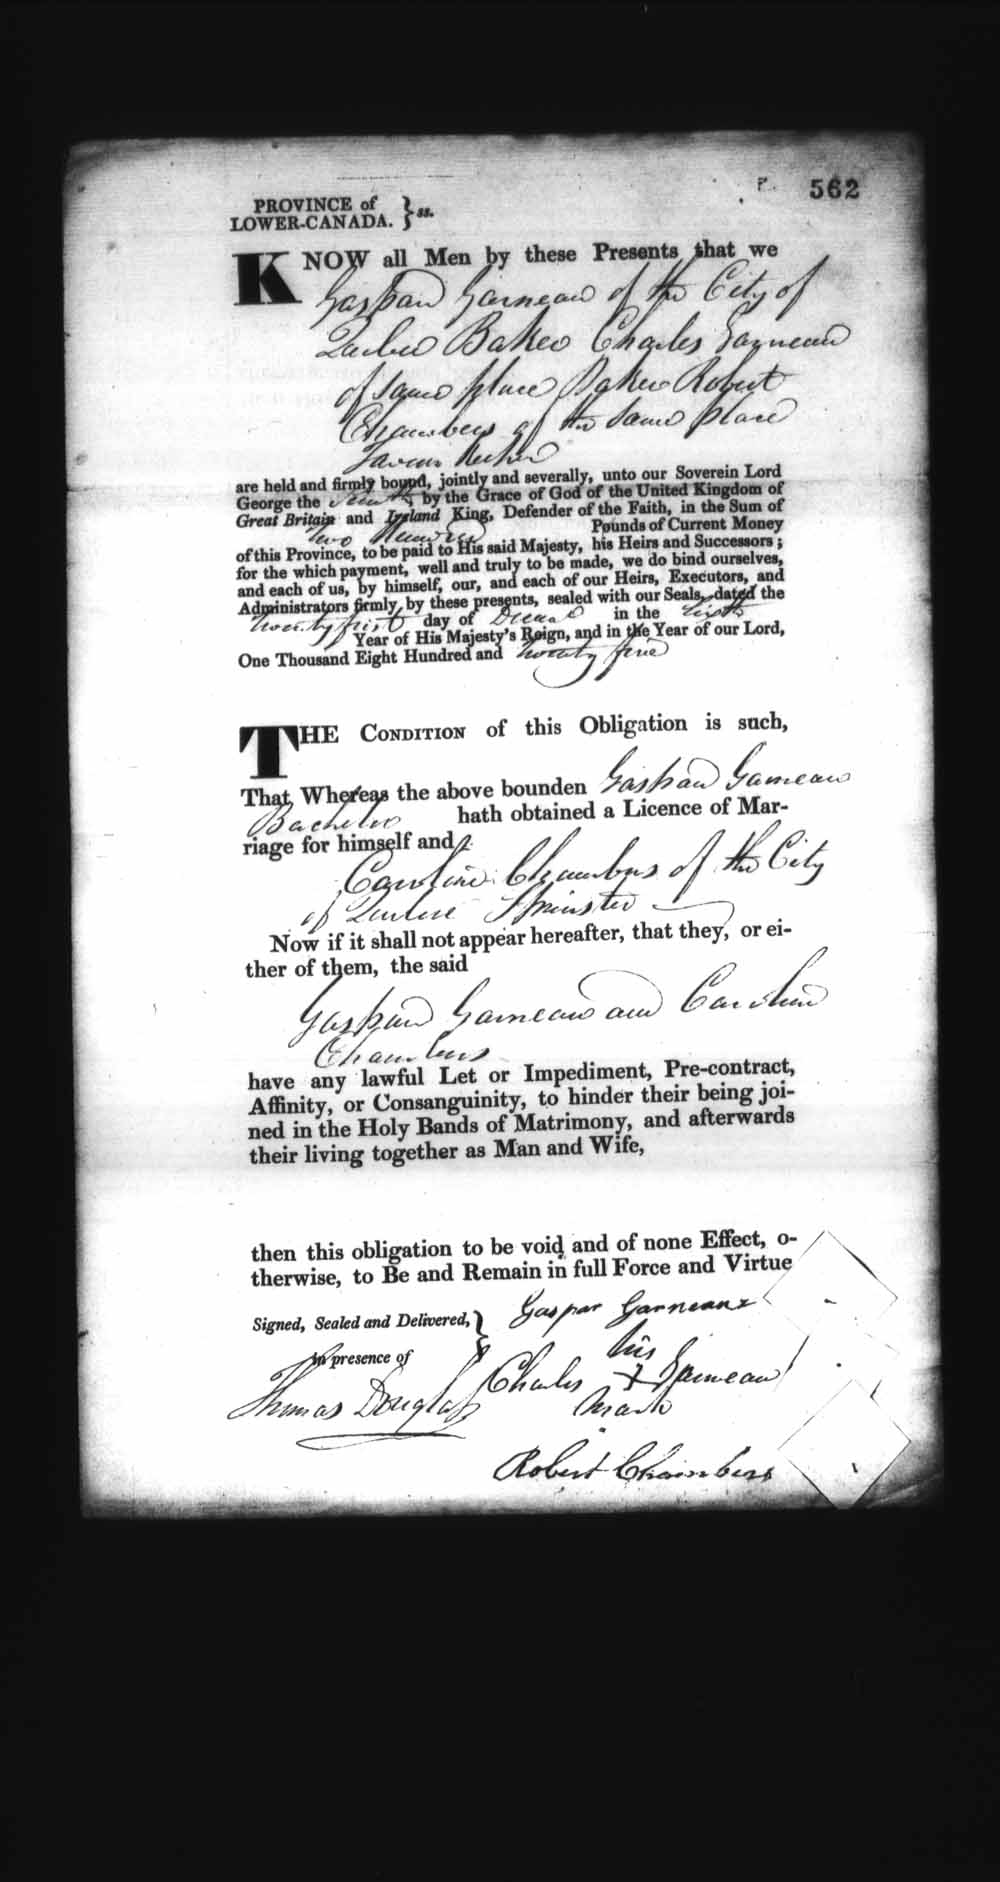 562
PROVINCE of
LOWER-CANADA. } ss.
KNOW all Men by these Presents that we
Gaspard Garneau of the City of
Quebec Baker Charles Garneau
of same place Baker Robert
Chambers of the same place
Tavern Keeper
are held and firmly bound, jointly and severally, unto our Soverein Lord
George the Fourth, by the Grace of God of the United Kingdom of
Great Britain and Ireland King, Defender of the Faith, in the Sum of
Two Hundred Pounds of Current Money
of this Province, to be paid to His said Majesty, his Heirs and Successors;
for the which payment, well and truly to be made, we do bind ourselves,
and each of us, by himself, our, and each of our Heirs, Executors, and
Administrators firmly by these presents, sealed with our Seals, dated the
twenty first day of in the sixth
Year of His Majesty's Reign, and in the Year of our Lord,
One Thousand Eight Hundred and twenty five
THE CONDITION of this Obligation is such,
That Whereas the above bounden Gaspard Garneau
Bachelor hath obtained a Licence of Mar-
riage for himself and
Caroline Chambers of the City
of Quebec Spinster
Now if it shall not appear hereafter, that they, or ei-
ther of them, the said
Gaspard Garneau and Caroline
Chambers
have any lawful Let or Impediment, Pre-contract,
Affinity, or Consanguinity, to hinder their being joi-
ned in the Holy Bands of Matrimony, and afterwards
their living together as Man and Wife,
then this obligation to be void and of none Effect, o-
therwise, to Be and Remain in full Force and Virtue
Signed, Sealed and Delivered, } Gaspar Garneaux
in presence of
his
Charles + Garneau
mark
Thomas Douglass
Robert Chambers